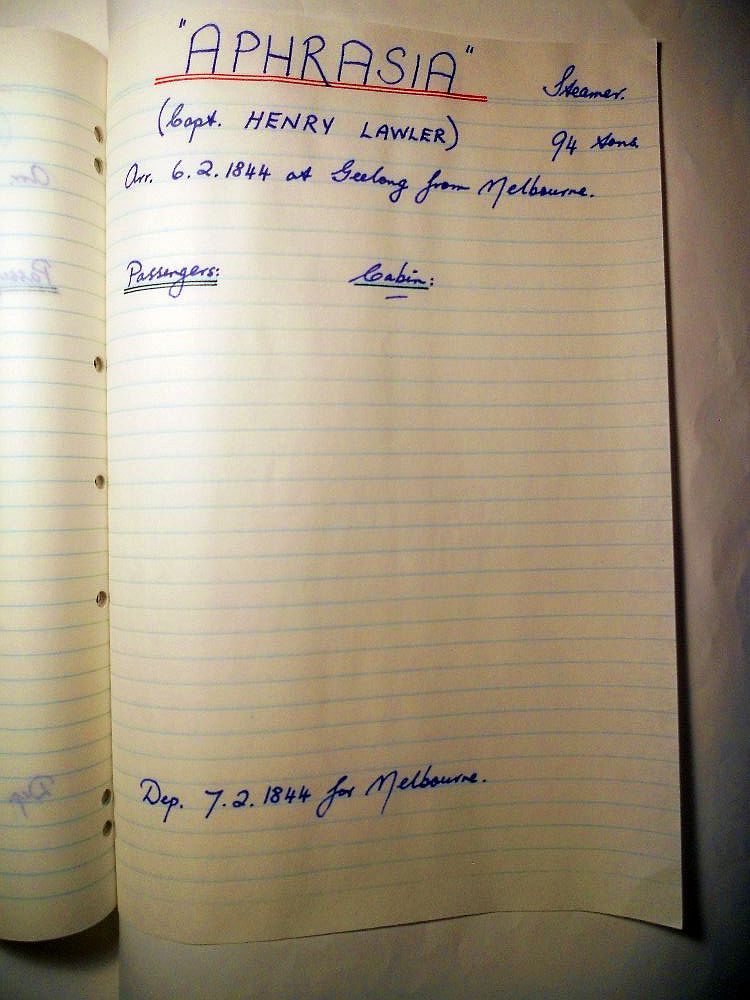 "APHRASIA" Steamer.
(Capt. HENRY LAWLER) 94 tons.
Arr. 6.2.1844 at Geelong from Melbourne.
Passengers: Cabin:
Dep. 7.2.1844 for Melbourne.